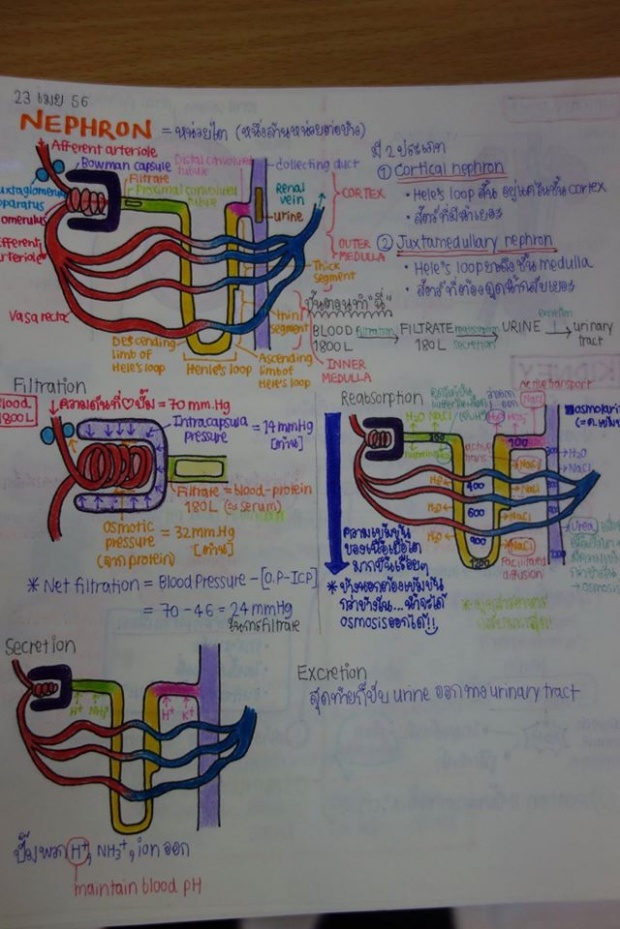 23 เมย 56
NEPHRON = หน่วยไต (หนึ่งล้านหน่วยต่อข้าง)
Afferent arteriole
Bowman capsule
Filtrate
Proximal convoluted
tubule
Distal convoluted
tubule
collecting duct
Juxtaglomerul
paratus
omerulus
Efferent
rteriole
Vasa recta
Renal
vein
urine
CORTEX
OUTER
MEDULLA
Thick
segment
thin
segment
INNER
MEDULLA
Descending
limb of
Hele's loop
Henle's loop
Ascending
limb of
Hele's loop
มี 2 ประเภท
① Cortical nephron
• Hele's loop สั้น อยู่แค่ในชั้น cortex
② Juxtamedullary nephron
• Hele's loop ยาวถึงชั้น medulla
• สัตว์ที่ต้องดูดน้ำกลับเยอะ
ขั้นตอนทำ "ฉี่"
BLOOD filtration FILTRATE reabsorption URINE excretion urinary
1800 L 180 L secretion tract
Filtration
Blood
1800 L
ความดันที่♡ปั๊ม = 70 mm.Hg
Intracapsula = 14 mmHg
pressure [ต้าน]
Filtrate = blood-protein
180 L (≈ serum)
Osmotic = 32 mm.Hg
pressure [ต้าน]
(จากprotein)
* Net filtration = Blood Pressure - [O.P-ICP]
= 70 - 46 = 24 mmHg
ในการfiltrate
Reabsorption
Active transport
NaCl
H₂O NaCl
osmolarity
100
100
H₂O
NaCl
400
600
900
H₂O
H₂O
H₂O
NaCl
NaCl
NaCl
Urea
Facilitated
diffusion
ความเข้มข้น
ของเนื้อเยื่อไต
มากขึ้นเรื่อยๆ
* ข้างนอกต้องเข้มข้น
กว่าข้างใน... น้ำจะได้
osmosis ออกได้!!
Secretion
H⁺ NH₃⁺ H⁺ K⁺
ปั๊มพวก H⁺, NH₃⁺, ion ออก
maintain blood pH
Excretion
สุดท้ายก็ขับ urine ออกทาง urinary tract